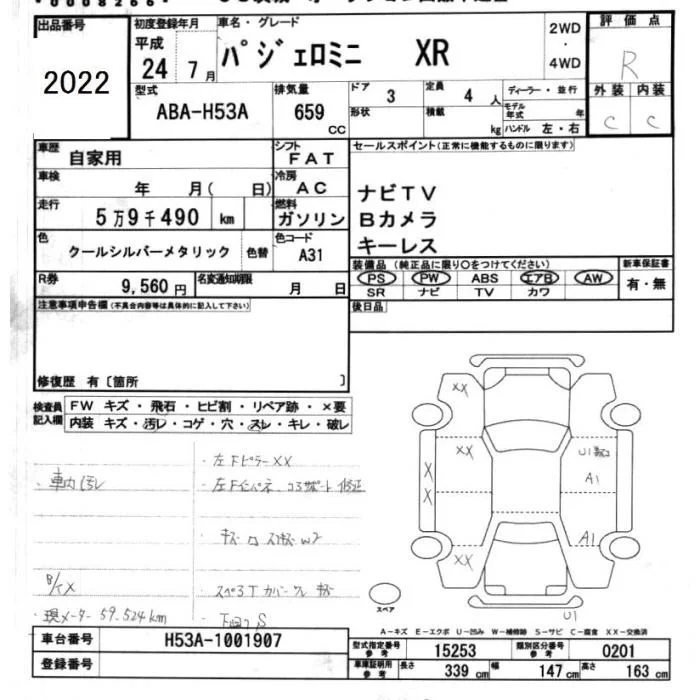 出品番号
2022
初度登録年月
平成
24年 7月
車名・グレード
パジェロミニ XR
2WD
・
4WD
評価点
R
型式
ABA-H53A
排気量
659
CC
ドア
3
定員
4人
形状
積載
kg
ディーラー・並行
モデル年式 年
ハンドル 左・右
外装 内装
C C
車歴
自家用
シフト
FAT
車検
年 月( 日)
冷房
AC
走行
5万9千490 km
燃料
ガソリン
色
クールシルバーメタリック
色替
色コード
A31
R券
9,560円
名変通知期限
月 日
セールスポイント(正常に機能するものに限ります)
ナビTV
Bカメラ
キーレス
装備品(純正品に限り○をつけてください)
PS PW ABS エアB AW
SR ナビ TV カワ
新車保証書
有・無
後日品
注意事項申告欄(不具合内容等は具体的に記入して下さい)
修復歴 有〔箇所 〕
検査員記入欄
FW キズ・飛石・ヒビ割・リペア跡・×要
内装 キズ・汚レ・コゲ・穴・スレ・キレ・破レ
・左FピラーXX
・車内汚レ
・左Fインパネ コアサポート 修正
W2
B/イX
・現メーター 59.524km
カバー
下回りS
XX
XX
XX
X
X
U1
A1
A1
U1
スペア
A-キズ E-エクボ U-凹み W-補修跡 S-サビ C-腐食 XX-交換済
車台番号
H53A-1001907
登録番号
型式指定番号
参考
15253
類別区分番号
参考
0201
車庫証明用
参考
長さ 339 cm 幅 147 cm 高さ 163 cm